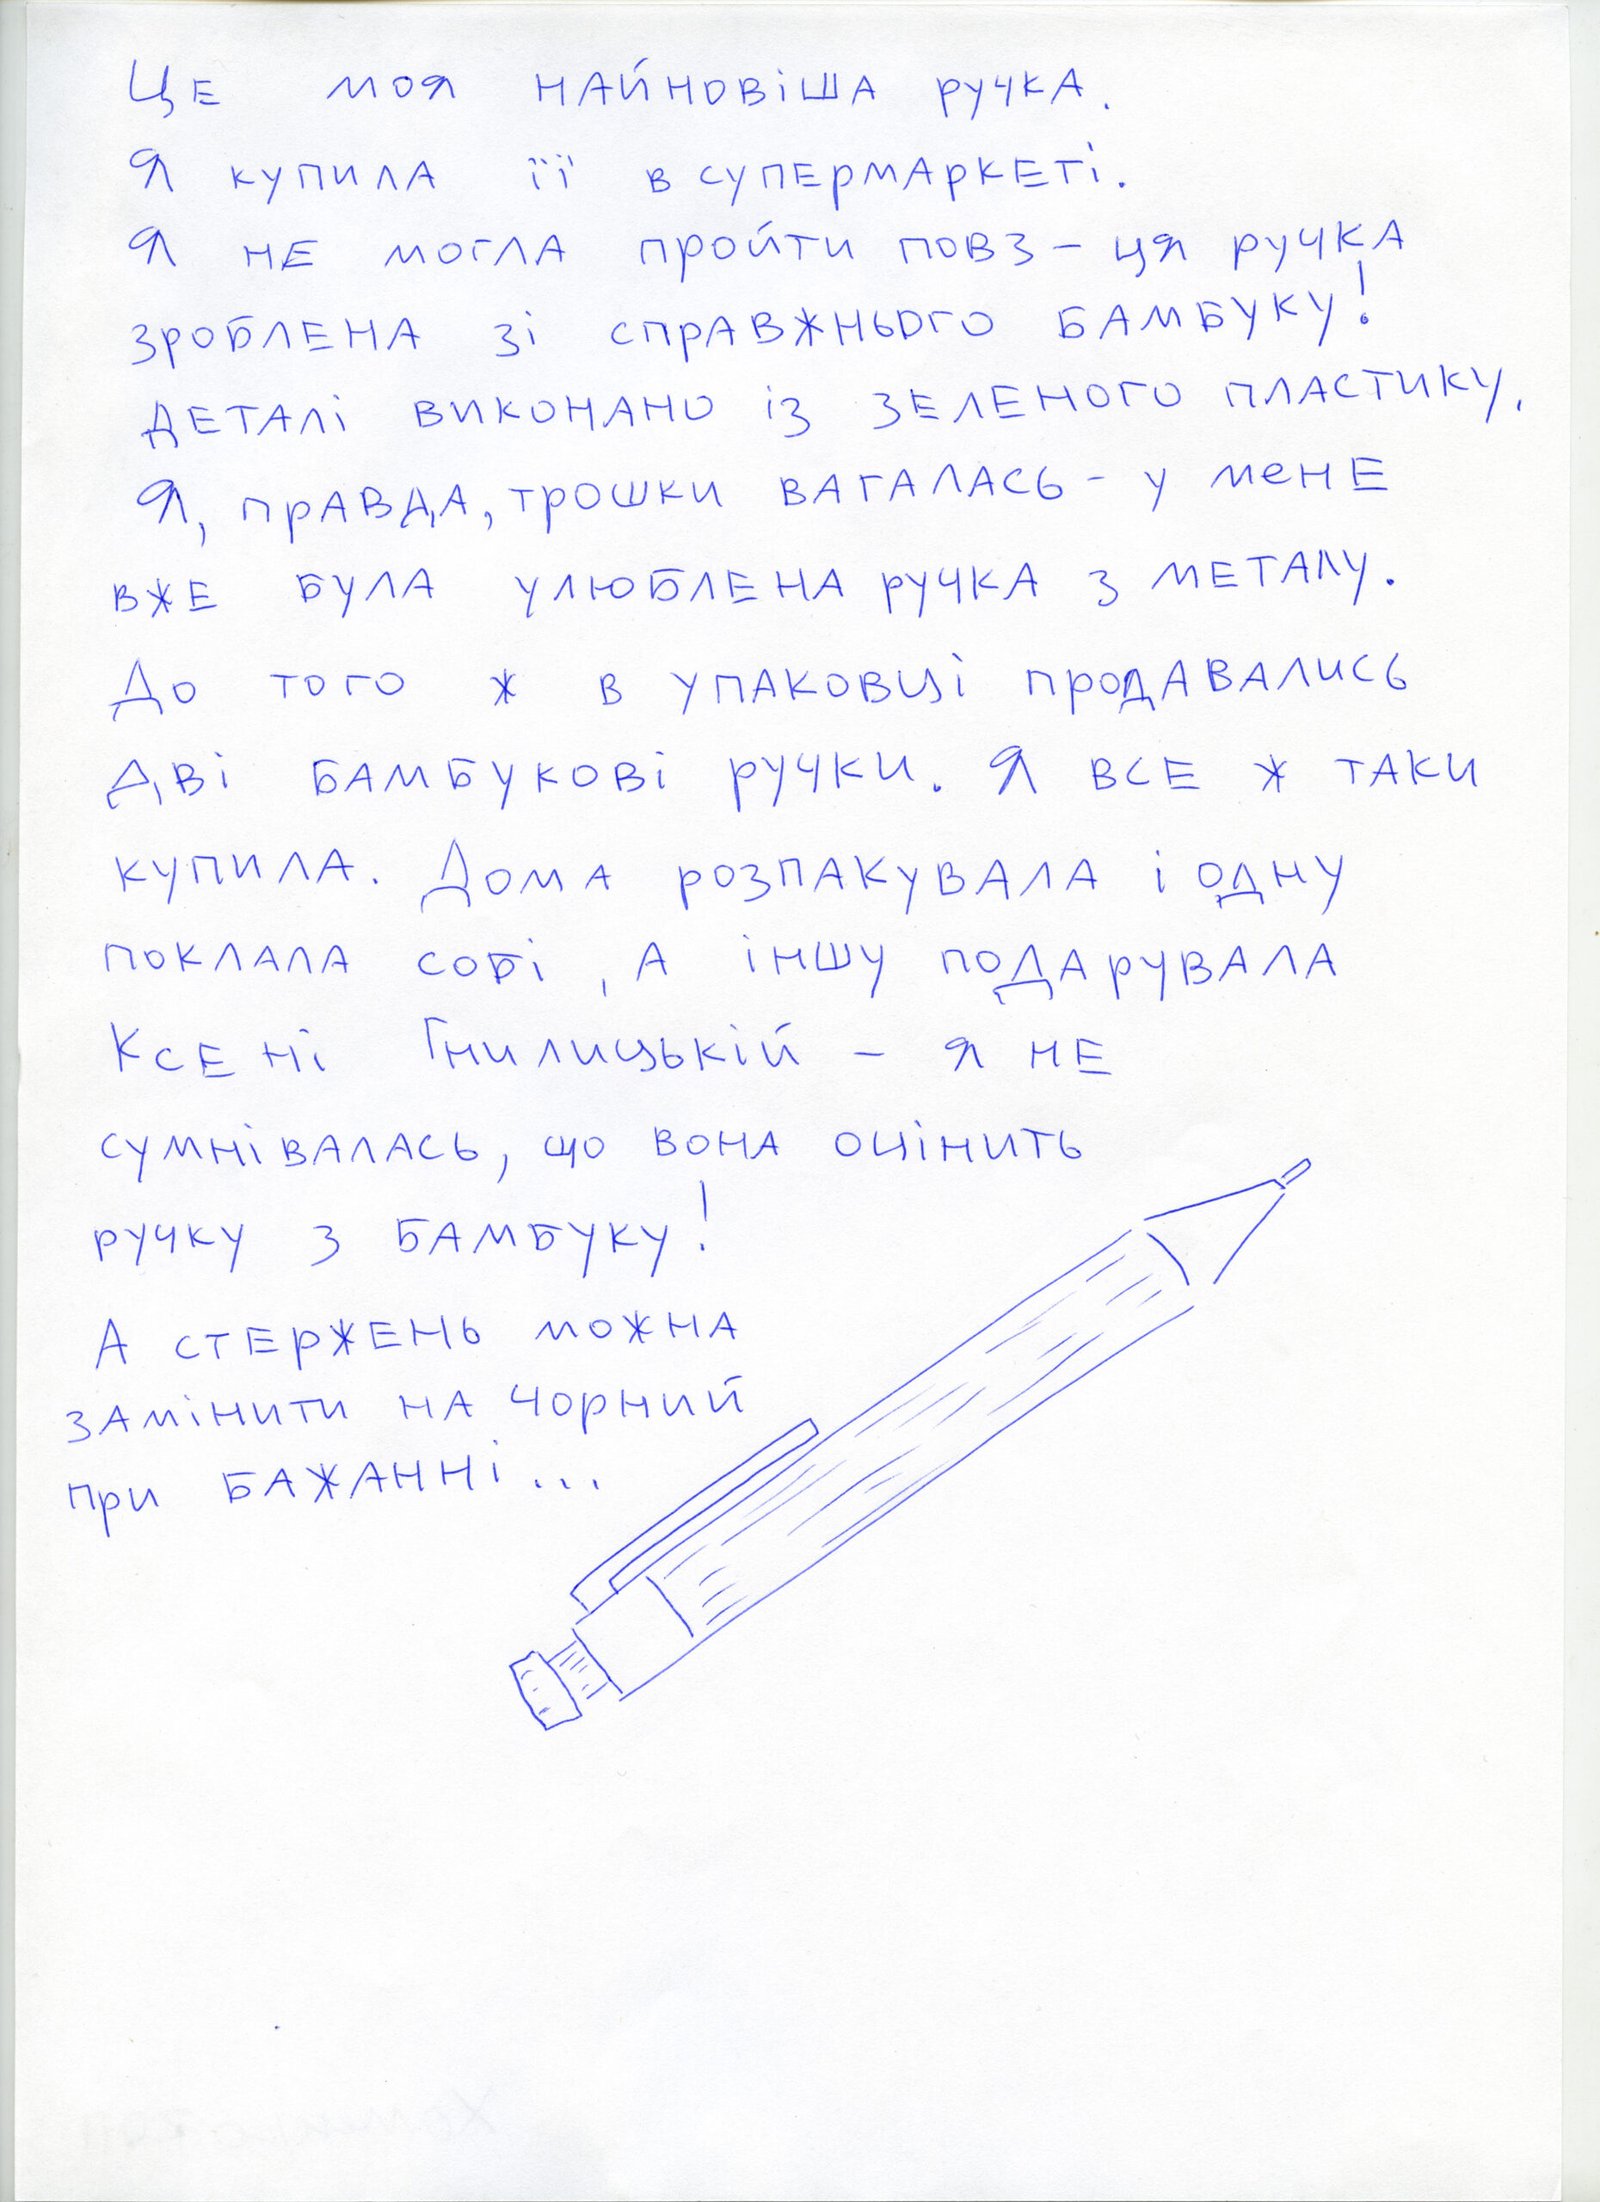 Це моя найновіша ручка.
Я купила її в супермаркеті.
Я не могла пройти повз – ця ручка
зроблена зі справжнього бамбуку!
Деталі виконано із зеленого пластику.
Я, правда, трошки вагалась – у мене
вже була улюблена ручка з металу.
До того ж в упаковці продавались
дві бамбукові ручки. Я все ж таки
купила. Дома розпакувала і одну
поклала собі, а іншу подарувала
Ксені Гнилицькій – я не
сумнівалась, що вона оцінить
ручку з бамбуку!
А стержень можна
замінити на чорний
при бажанні...